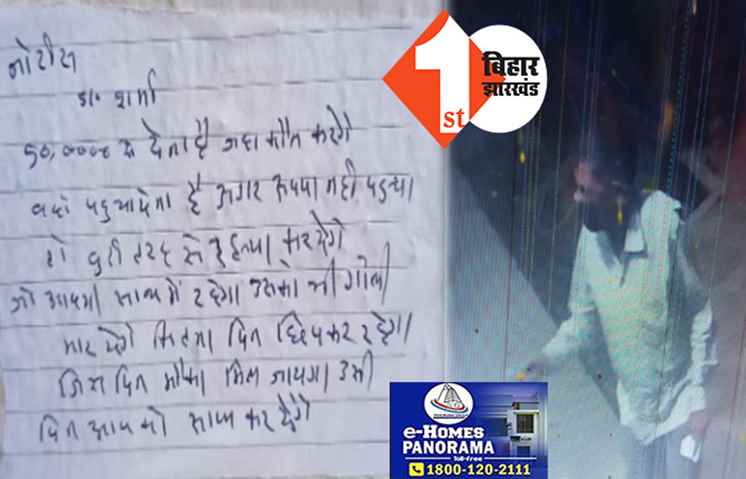 नोटीस
डा० शर्मा
50,0000 रु देना है जहा फोन करेगे
वहां पहुचा देना है अगर रूपया नही पहुचा
तो बुरी तरह से हत्या कर देंगे
जो आदमी साथ में रहेगा उसको भी गोली
मार देंगे कितना दिन छिपकर रहेगा
जिस दिन मौका मिल जायगा उसी
दिन आप को साफ कर देंगे
1st
बिहार
झारखंड
e-HOMES
PANORAMA
Toll-free
1800-120-2111